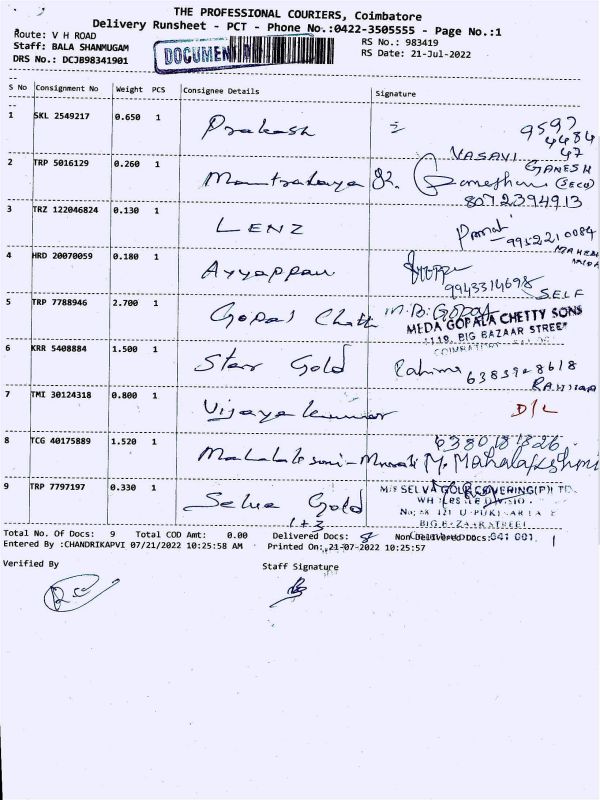 THE PROFESSIONAL COURIERS, Coimbatore
Delivery Runsheet - PCT - Phone No.:0422-3505555 - Page No.:1
Route: V H ROAD
RS No.: 983419
Staff: BALA SHANMUGAM
DOCUMEN
RS Date: 21-Jul-2022
DRS No.: DCJB98341901
S No Consignment No Weight PCS Consignee Details Signature
1 SKL 2549217 0.650 1 Prakash 9597
4484
47
2 TRP 5016129 0.260 1 Mantralaya VASAVI
GANESH
(SECU)
8072394913
3 TRZ 122046824 0.130 1 LENZ
9952210084
4 HRD 20070059 0.180 1 Ayyappan
9943314698 SELF
5 TRP 7788946 2.700 1 Gopal Chetti M.B. Gopal
MEDA GOPALA CHETTY SONS
1119, BIG BAZAAR STREET
6 KRR 5408884 1.500 1 Star Gold Rahima 6383928618
7 TMI 30124318 0.800 1 Vijaya kumar D/L
8 TCG 40175889 1.520 1 Mahalaksmi - Murali M. Mahalakshmi
6380181826
9 TRP 7797197 0.330 1 Selva Gold M/S SELVA GOLD COVERING(P) LTD.
1+3
Total No. Of Docs: 9 Total COD Amt: 0.00 Delivered Docs: 8 Non Delivered Docs: 1
641 001.
Entered By :CHANDRIKAPVI 07/21/2022 10:25:58 AM Printed On: 21-07-2022 10:25:57
Verified By Staff Signature